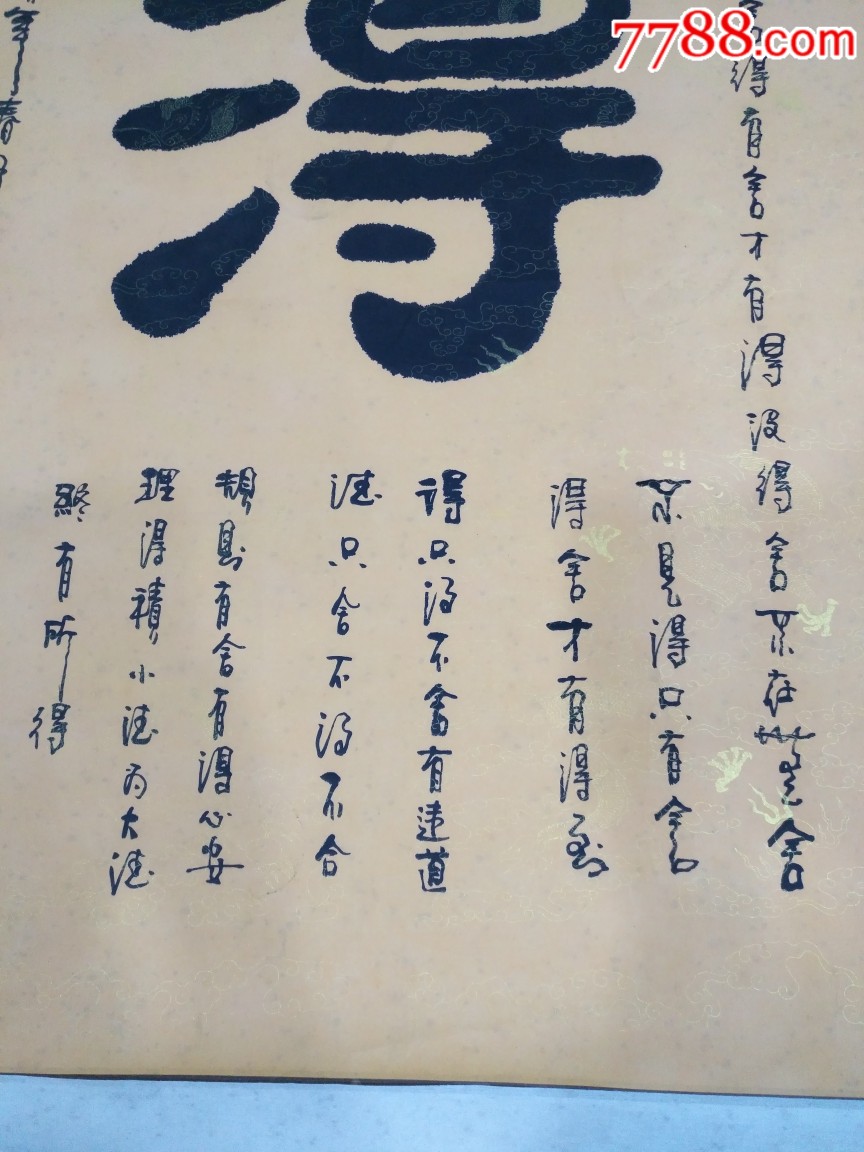 7788.com
得
舍得有舍才有得没得舍在舍
見得只有舍
得舍才有得到
得只得不舍有违道
德只舍不得不合
规则有舍有得心安
理得積小德为大德
終有所得
年春